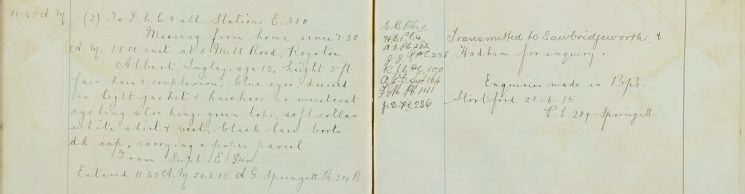 11-48 A.M (2) To D.C.C & all Stations E. 380
Missing from home since 7-30
A.M 18th inst at 5 Mill Road, Royston
Albert Inglay, age 13, height 5 ft.
fair hair & complexion, blue eyes, dressed
in light jacket & knickers no waistcoat
cycling stockings green tops, soft collar
white shirt & vest, black lace boots
dk cap, carrying a paper parcel
From Supt E. Div
Entered 11-48 A.M 20.6.15 A G Springett Pc 209 B
Transmitted to Sawbridgeworth &
Hadham for inquiry.
Enquiries made in Bps.
Stortford 21.6.15
P.C. 209 Springett